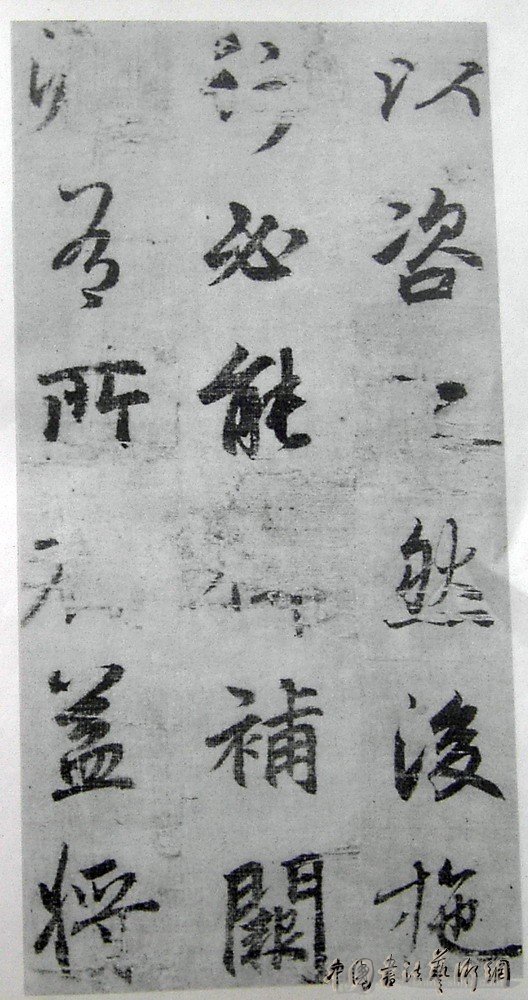 以咨然後施
行必能補闕
有所益將
中國書法藝術網